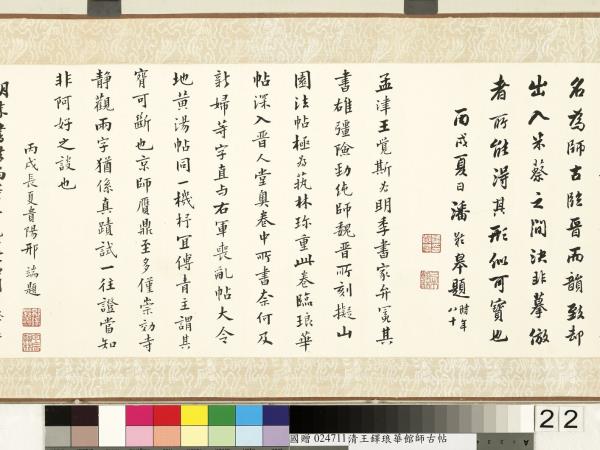 名為師古臨晉而韻致却
出入米蔡之間決非摹倣
者所能得其形似可寶也
丙戌夏日潘齡皋題時年
八十
孟津王覺斯為明季書家弁冕其
書雄彊險勁純師魏晉所刻擬山
園法帖極為蓺林珎重此卷臨琅華
帖深入晉人堂奧卷中所書奈何及
新婦等字直与右軍喪亂帖大令
地黃湯帖同一機杼宜傅青主謂其
寶可斷也京師贗鼎至多僅崇効寺
靜觀兩字猶係真蹟試一往證當知
非阿好之談也
丙戌長夏貴陽邢端題
22
國贈 024711 清王鐸琅華館師古帖